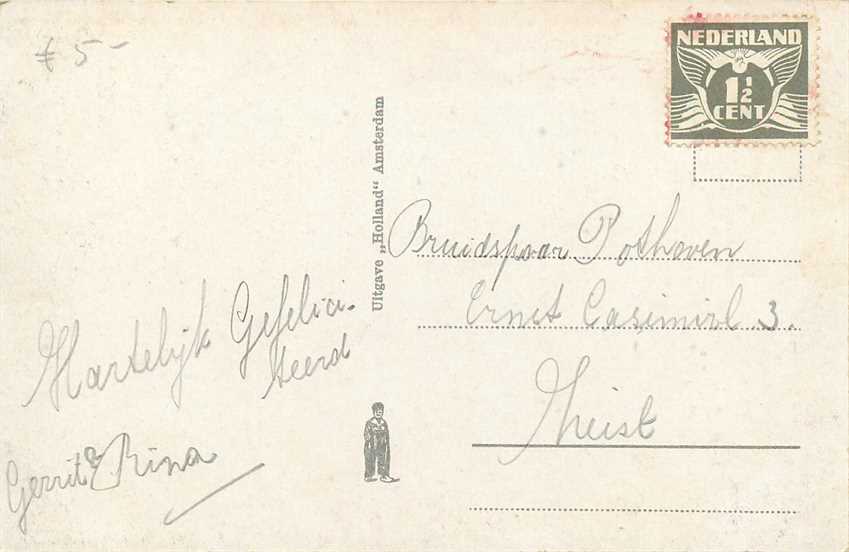 € 5-
NEDERLAND
1 1/2
CENT
Uitgave „Holland“ Amsterdam
Bruidspaar Pothoven
Ernst Casimirl. 3.
Zheist
Hartelijk Gefelici-
teerd
Gerrit & Rina